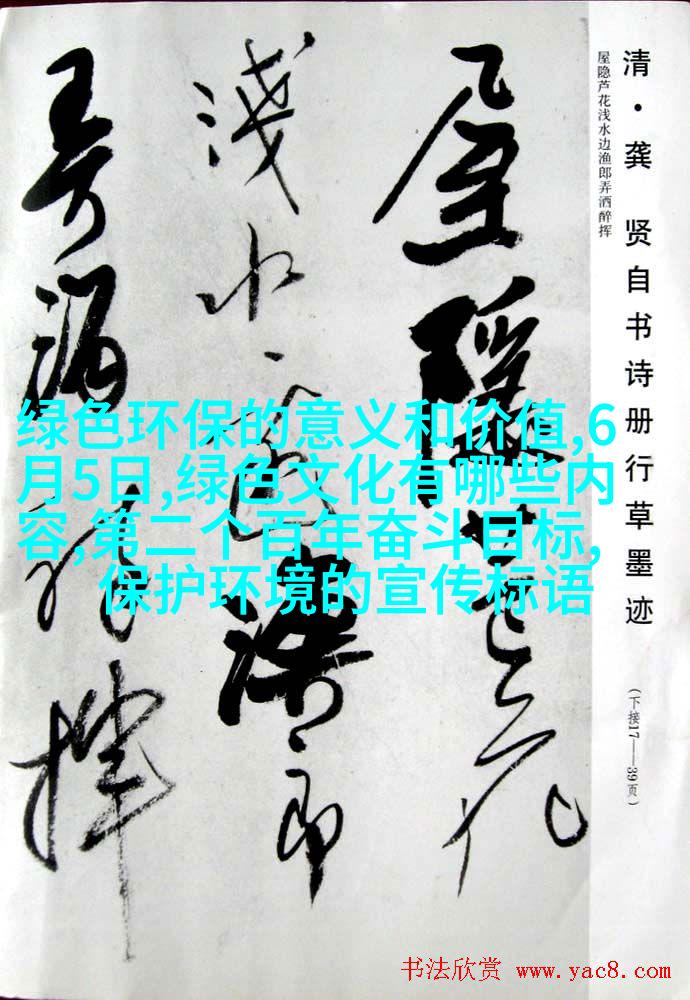 清·龚 贤自书诗册行草墨迹
(下接17——39页)
屋隐芦花浅水边渔郎弄洒醉挥
屋隐芦花
浅水边渔郎
弄酒醉挥
绿色环保的意义和价值,6
月5日,绿色文化有哪些内
容,第二个百年奋斗目标,
保护环境的宣传标语
书法欣赏 www.yac8.com